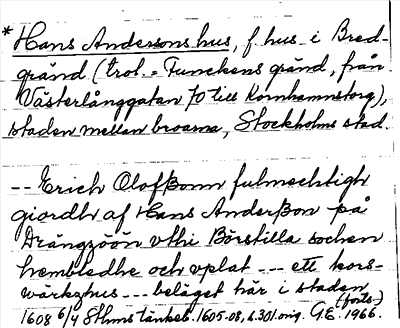 * Hans Anderssons hus, f. hus i Bred-
gränd (trol. = Funckens gränd, från
Västerlånggatan 70 till Kornhamnstorg),
staden mellan broarna, Stockholms stad.
-- Erich Olofßonn fulmechtigh
giordh af Hans Anderßon på
Drängzöön vthi Börstilla sochen
hembledhe och vplat --- ett kors-
wärkzhus --- beläget här i staden
(forts.)
1608 6/4 Sthms tänkeb. 1605-08, s. 301. orig. G.E. 1966.